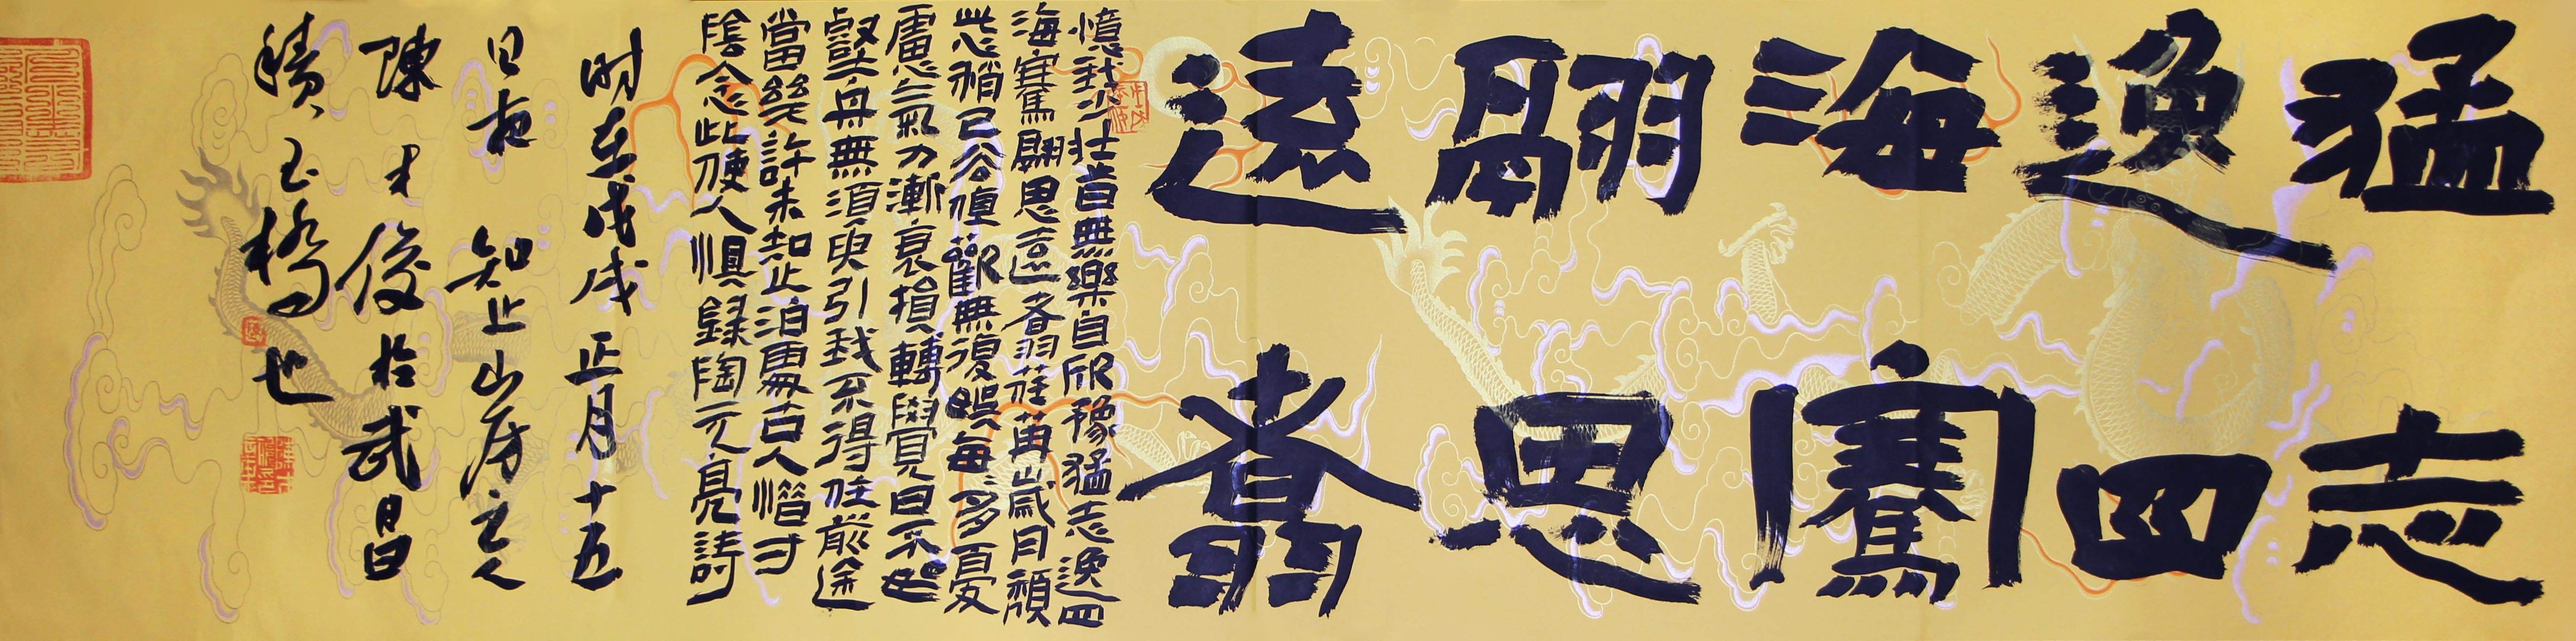 猛志
逸四
海騫
翮思
遠翥
憶我少壯旹無樂自欣豫猛志逸四
海騫翮思遠翥荏苒歲月頹
此心稍已去值歡無復娛每每多憂
慮氣力漸衰損轉覺日不如
壑舟無須臾引我不得住前途
當幾許未知止泊處古人惜寸
陰念此使人懼錄陶元亮詩
時在戊戌正月十五
日夜 知止山房主人
陳才俊於武昌
積玉橋也